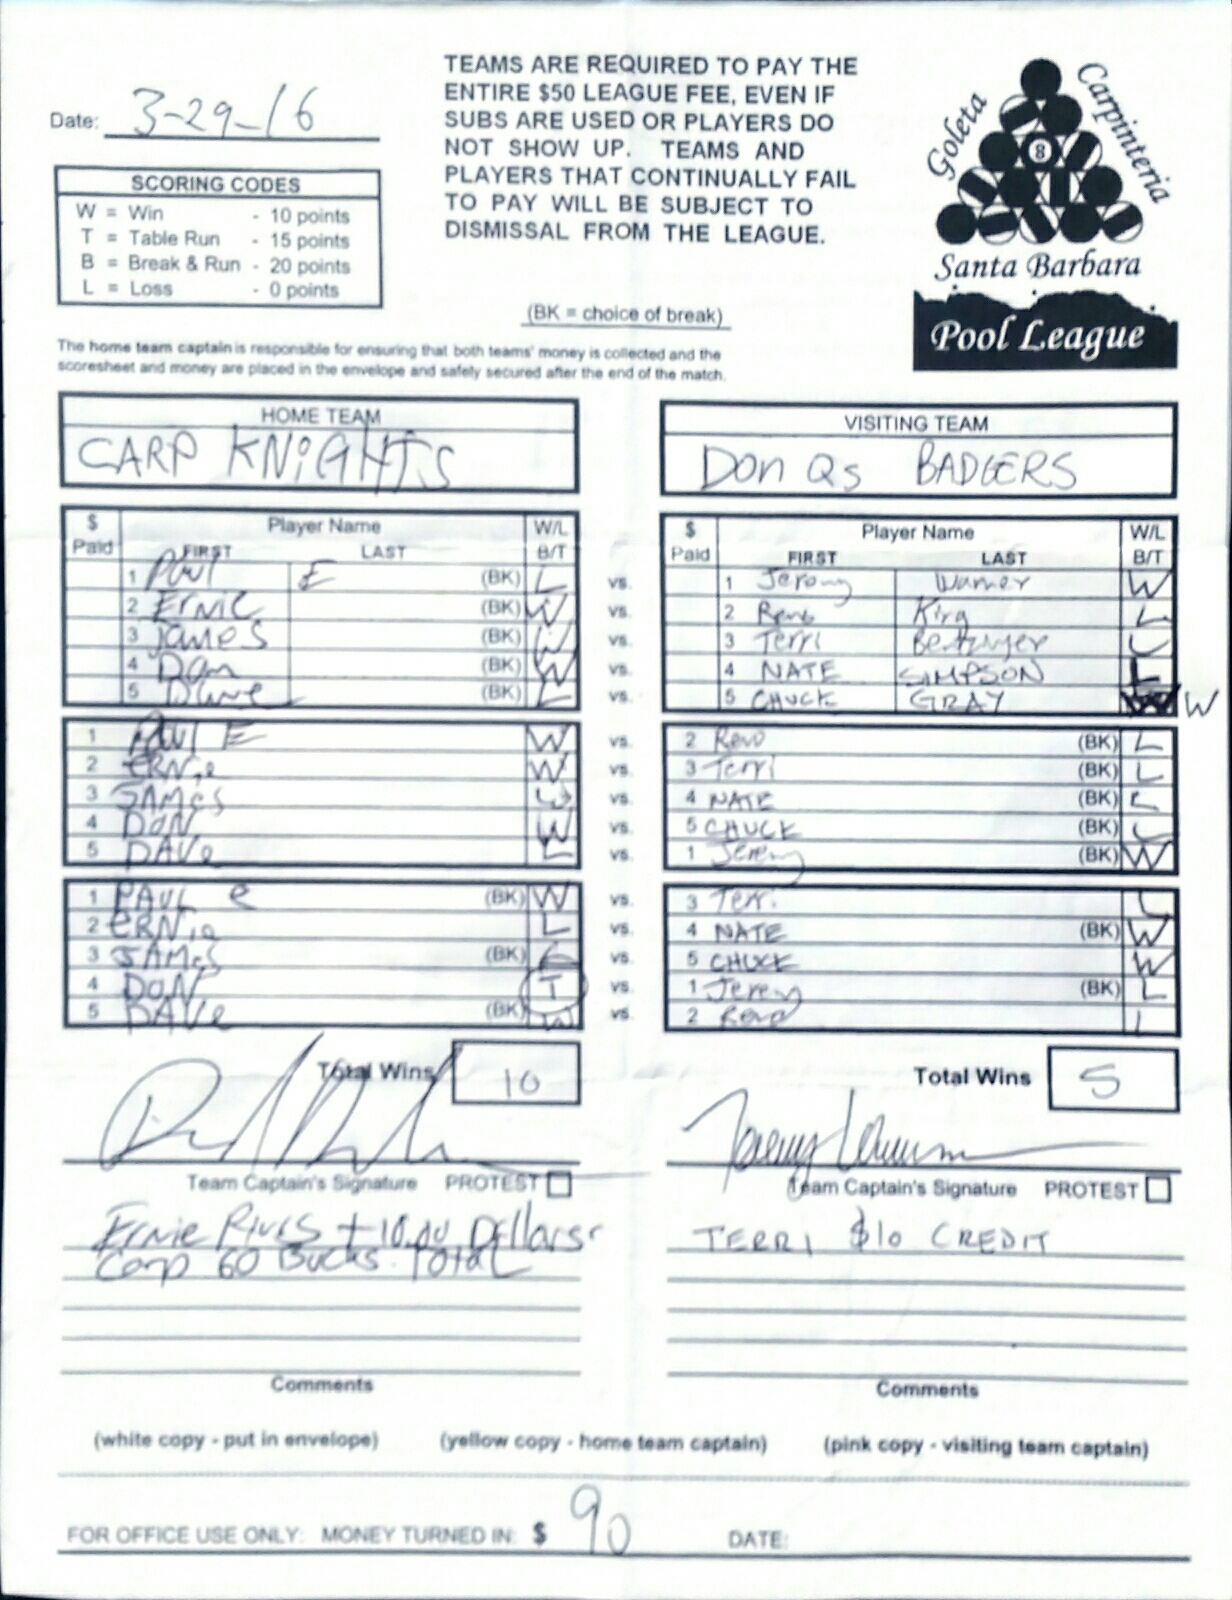 Date: 3-29-16
TEAMS ARE REQUIRED TO PAY THE
ENTIRE $50 LEAGUE FEE, EVEN IF
SUBS ARE USED OR PLAYERS DO
NOT SHOW UP. TEAMS AND
PLAYERS THAT CONTINUALLY FAIL
TO PAY WILL BE SUBJECT TO
DISMISSAL FROM THE LEAGUE.
(BK = choice of break)
Goleta
Carpinteria
8
Santa Barbara
Pool League
SCORING CODES
W = Win - 10 points
T = Table Run - 15 points
B = Break & Run - 20 points
L = Loss - 0 points
The home team captain is responsible for ensuring that both teams' money is collected and the
scoresheet and money are placed in the envelope and safely secured after the end of the match.
HOME TEAM
CARP KNiGHTS
VISITING TEAM
Don Qs BADGERS
$ Paid Player Name W/L
FIRST LAST B/T
$ Paid Player Name W/L
FIRST LAST B/T
1 Paul E (BK) L vs. 1 Jeremy Warner W
2 Ernie (BK) W vs. 2 Reno King L
3 James (BK) W vs. 3 Terri L
4 Don (BK) W vs. 4 NATE SIMPSON L
5 Dave (BK) L vs. 5 CHUCK GRAY W
1 PAUL E W vs. 2 Reno (BK) L
2 ERNie W vs. 3 Terri (BK) L
3 JAMes W vs. 4 NATE (BK) L
4 DON W vs. 5 CHUCK (BK) L
5 DAVe L vs. 1 Jeremy (BK) W
1 PAUL e (BK) W vs. 3 Terri L
2 eRNie L vs. 4 NATE (BK) W
3 JAMes (BK) L vs. 5 CHUCK W
4 DON T vs. 1 Jeremy (BK) L
5 DAVe (BK) W vs. 2 Reno L
Total Wins 10
Total Wins 5
Team Captain's Signature PROTEST
Team Captain's Signature PROTEST
Ernie Rivas +10.00 Dollars
Carp 60 Bucks. Total
TERRI $10 CREDIT
Comments
Comments
(white copy - put in envelope) (yellow copy - home team captain) (pink copy - visiting team captain)
FOR OFFICE USE ONLY: MONEY TURNED IN: $ 90 DATE: